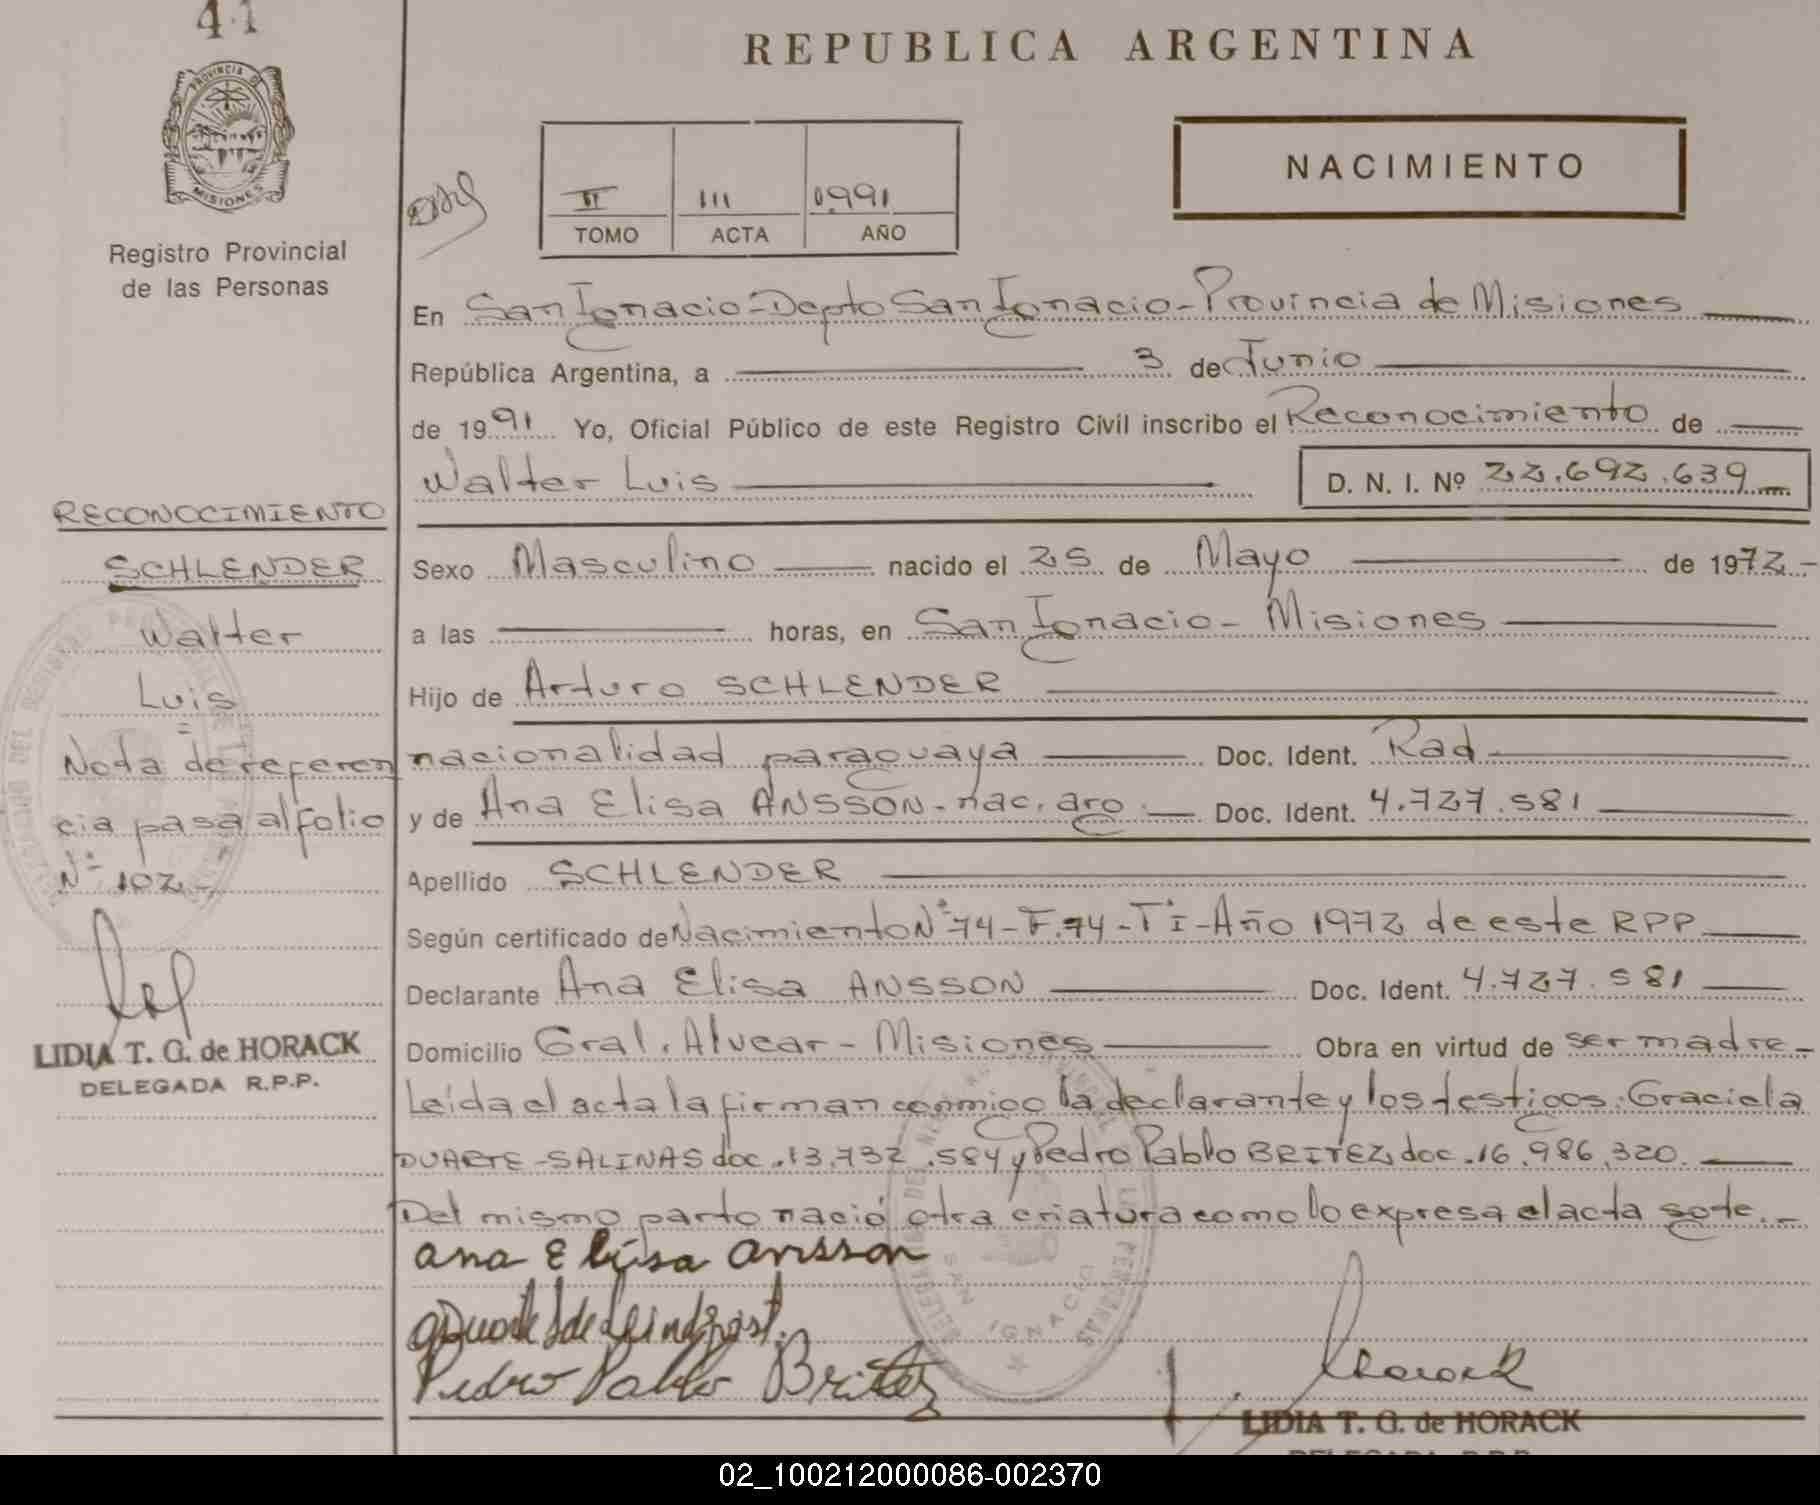 41
REPUBLICA ARGENTINA
PROVINCIA DE
MISIONES
Registro Provincial
de las Personas
II 111 1991
TOMO ACTA AÑO
NACIMIENTO
En San Ignacio - Depto San Ignacio - Provincia de Misiones
República Argentina, a 3 de Junio
de 1991 Yo, Oficial Público de este Registro Civil inscribo el Reconocimiento de
Walter Luis D. N. I. Nº 22.692.639
RECONOCIMIENTO
SCHLENDER
Walter
Luis
Nota de referen
cia pasa al folio
Nº 102.-
LIDIA T. G. de HORACK
DELEGADA R.P.P.
Sexo Masculino nacido el 25 de Mayo de 1972.-
a las horas, en San Ignacio - Misiones
Hijo de Arturo SCHLENDER
nacionalidad paraguaya Doc. Ident. Rad
y de Ana Elisa ANSSON - nac. arg Doc. Ident. 4.727.581
Apellido SCHLENDER
Según certificado de Nacimiento Nº 74 - F. 74 - Tº I - Año 1972 de este RPP
Declarante Ana Elisa ANSSON Doc. Ident. 4.727.581
Domicilio Gral. Alvear - Misiones Obra en virtud de ser madre -
Leída el acta la firman conmigo la declarante y los testigos: Graciela
DUARTE - SALINAS doc. 13.732.584 y Pedro Pablo BRITEZ, doc. 16.986.320.
Del mismo parto nació otra criatura como lo expresa el acta sgte. -
Ana Elisa Ansson
Pedro Pablo Britez
SAN IGNACIO
Horack
LIDIA T. G. de HORACK
DELEGADA R.P.P.
02_100212000086-002370